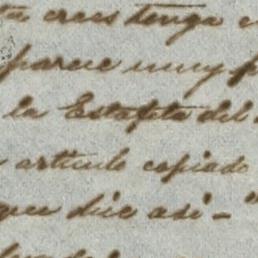 crees tenga
parece muy
la Estafeta del
articulo copiado
que dice asi - "